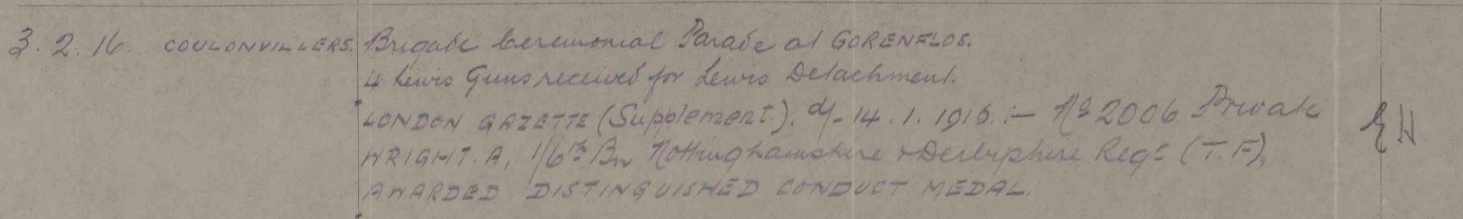 3.2.16. COULONVILLERS. Brigade Ceremonial Parade at GORENFLOS.
4 Lewis Guns received for Lewis Detachment.
LONDON GAZETTE (Supplement). d/- 14.1.1916 :- No 2006 Private
WRIGHT. A, 1/6th Bn Nottinghamshire & Derbyshire Regt (T.F),
AWARDED DISTINGUISHED CONDUCT MEDAL.